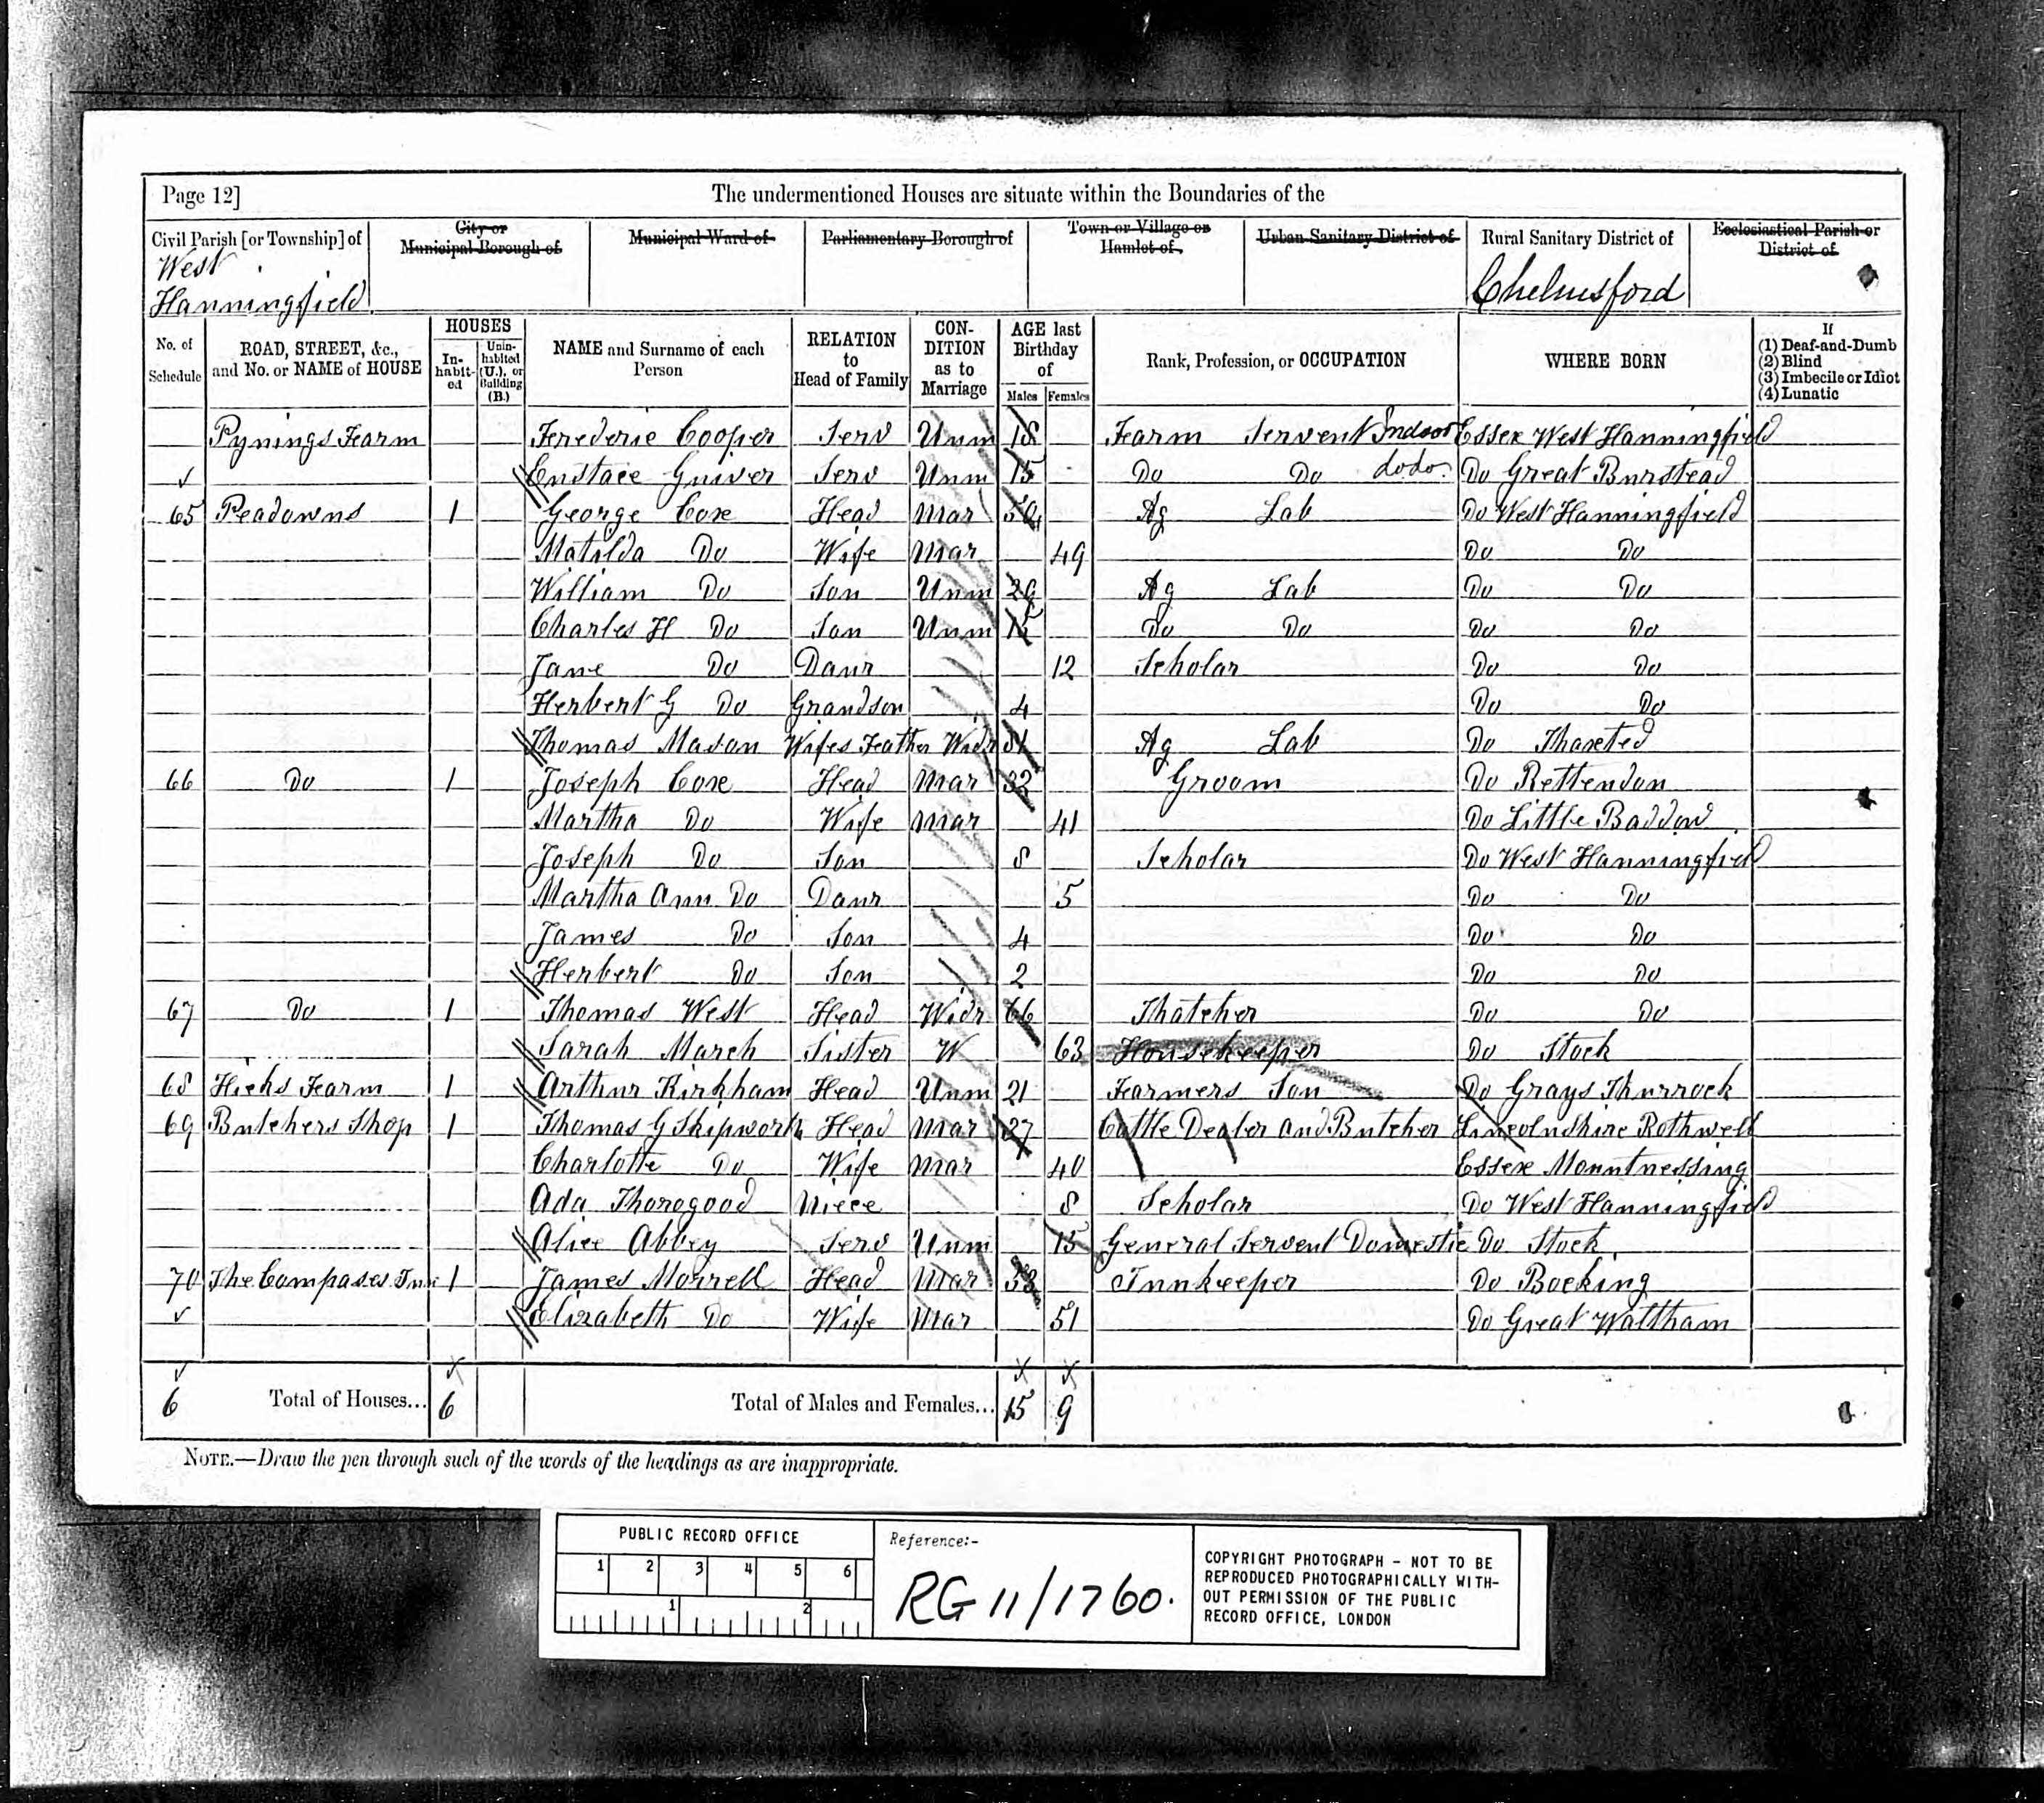 Page 12]
The undermentioned Houses are situate within the Boundaries of the
Civil Parish [or Township] of
West
Hanningfield
City or
Municipal Borough of
Municipal Ward of
Parliamentary Borough of
Town or Village or
Hamlet of
Urban Sanitary District of
Rural Sanitary District of
Chelmsford
Ecclesiastical Parish or
District of
No. of
Schedule
ROAD, STREET, &c.,
and No. or NAME of HOUSE
HOUSES
In-
habit-
ed
Unin-
habited
(U.), or
Building
(B.)
NAME and Surname of each
Person
RELATION
to
Head of Family
CON-
DITION
as to
Marriage
AGE last
Birthday
of
Males
Females
Rank, Profession, or OCCUPATION
WHERE BORN
If
(1) Deaf-and-Dumb
(2) Blind
(3) Imbecile or Idiot
(4) Lunatic
Pynings Fearm Frederic Cooper Serv Unm 18 Fearm Servent Indoor Essex West Hanningfield
Eustace Guiver Serv Unm 15 Do Do do do Do Great Burstead
65 Peadowns 1 George Coxe Head Mar Ag Lab Do West Hanningfield
Matilda Do Wife Mar 49 Do Do
William Do Son Unm Ag Lab Do Do
Charles H Do Son Unm 15 Do Do Do Do
Jane Do Daur 12 Scholar Do Do
Herbert G Do Grandson 4 Do Do
Thomas Mason Wifes Feather Widr 81 Ag Lab Do Thaxted
66 Do 1 Joseph Coxe Head Mar 32 Groom Do Rettendon
Martha Do Wife Mar 41 Do Little Baddow
Joseph Do Son 8 Scholar Do West Hanningfield
Martha Ann Do Daur 5 Do Do
James Do Son 4 Do Do
Herbert Do Son 2 Do Do
67 Do 1 Thomas West Head Widr 66 Thatcher Do Do
Sarah March Sister W 63 Housekeeper Do Stock
68 Hicks Fearm 1 Arthur Kirkham Head Unm 21 Fearmers Son Do Grays Thurrock
69 Butchers Shop 1 Thomas G Skipworth Head Mar 27 Cattle Dealer and Butcher Lincolnshire Rothwell
Charlotte Do Wife Mar 40 Essex Mountnessing
Ada Thorogood Niece 8 Scholar Do West Hanningfield
Alice Abbey Serv Unm 15 General Servent Domestic Do Stock
70 The Compases Inn 1 James Morrell Head Mar 53 Innkeeper Do Bocking
Elizabeth Do Wife Mar 51 Do Great Waltham
6 Total of Houses... 6 Total of Males and Females... 15 9
NOTE.—Draw the pen through such of the words of the headings as are inappropriate.
PUBLIC RECORD OFFICE
1 2 3 4 5 6
1 2
Reference:-
RG 11/1760.
COPYRIGHT PHOTOGRAPH - NOT TO BE
REPRODUCED PHOTOGRAPHICALLY WITH-
OUT PERMISSION OF THE PUBLIC
RECORD OFFICE, LONDON